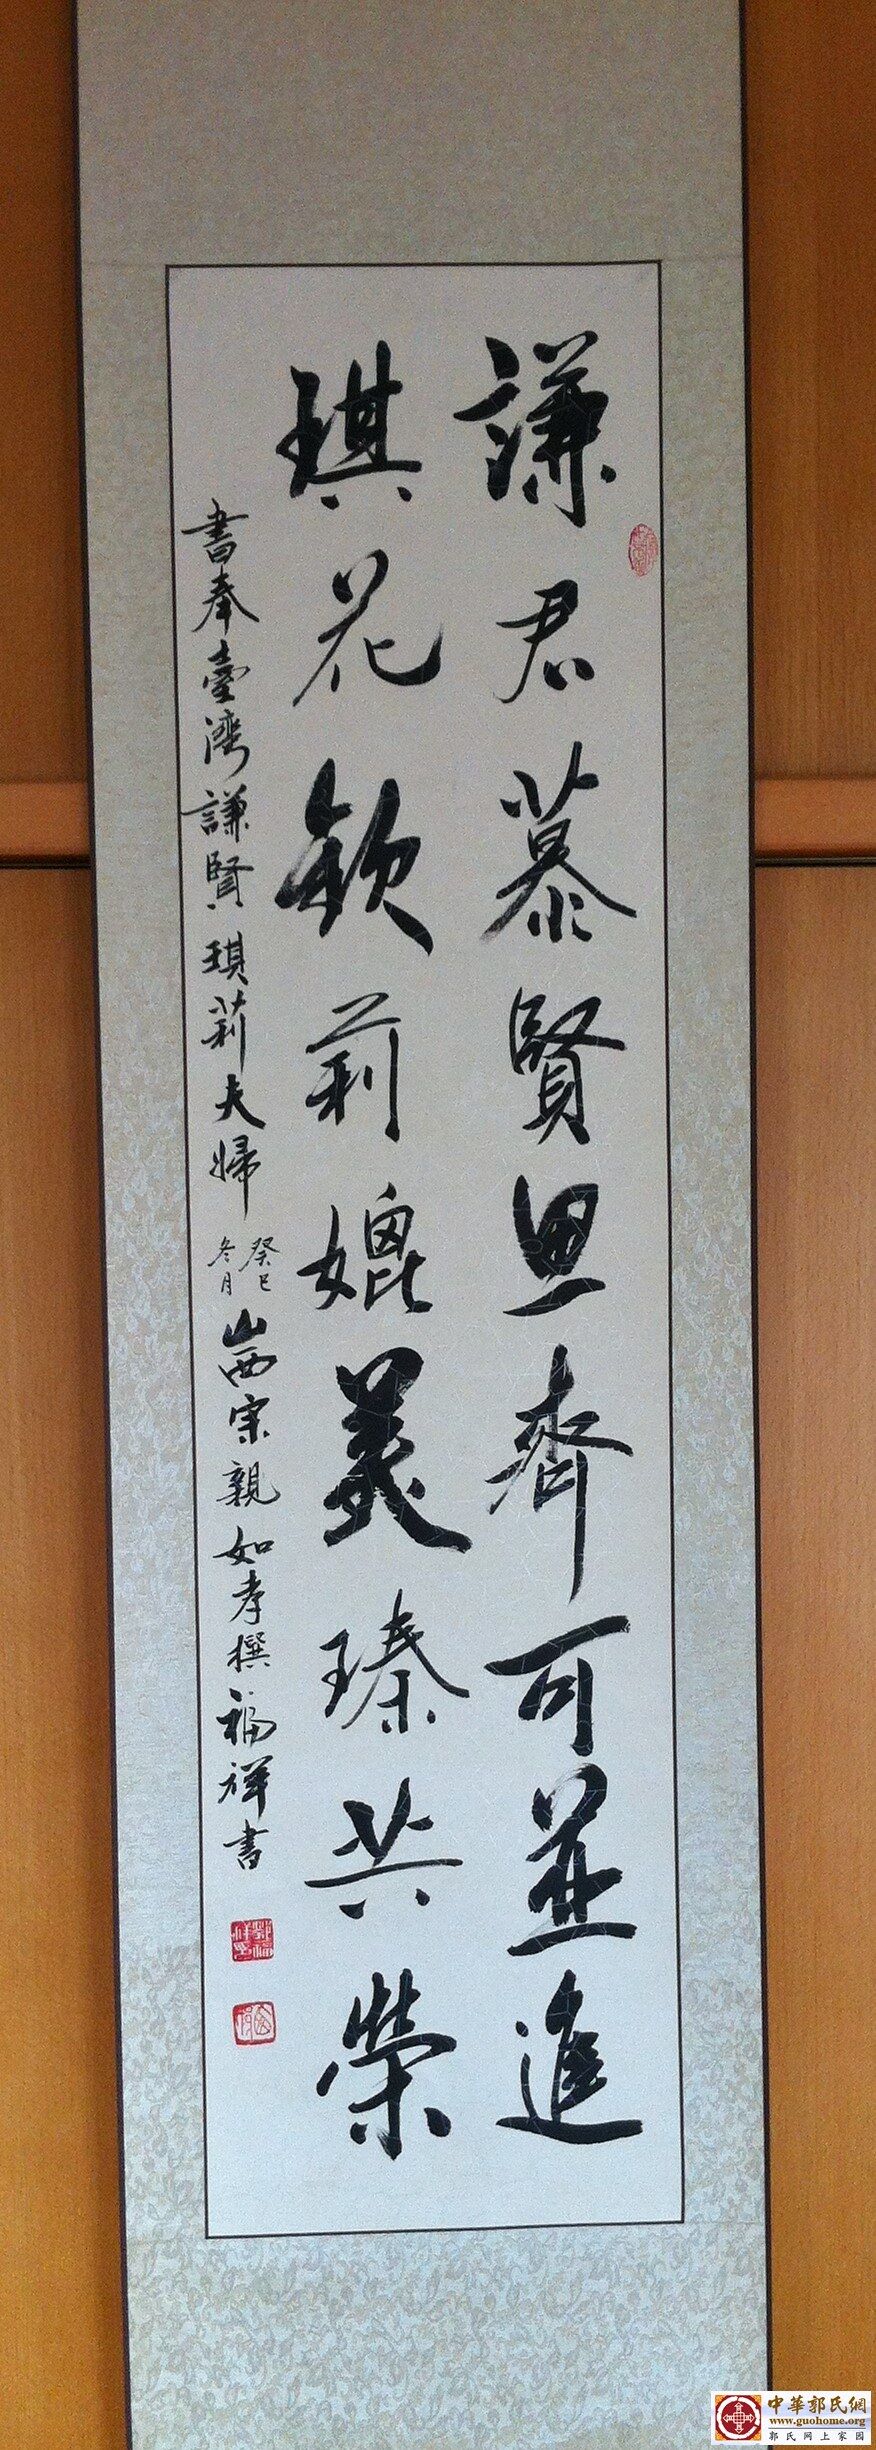 謙君慕賢思齊可並進
琪花欽莉媲美瑧共榮
書奉臺灣謙賢琪莉夫婦 癸巳冬月 山西宗親如孝撰 福祥書
中華郭氏網
www.guohome.org
郭氏网上家园